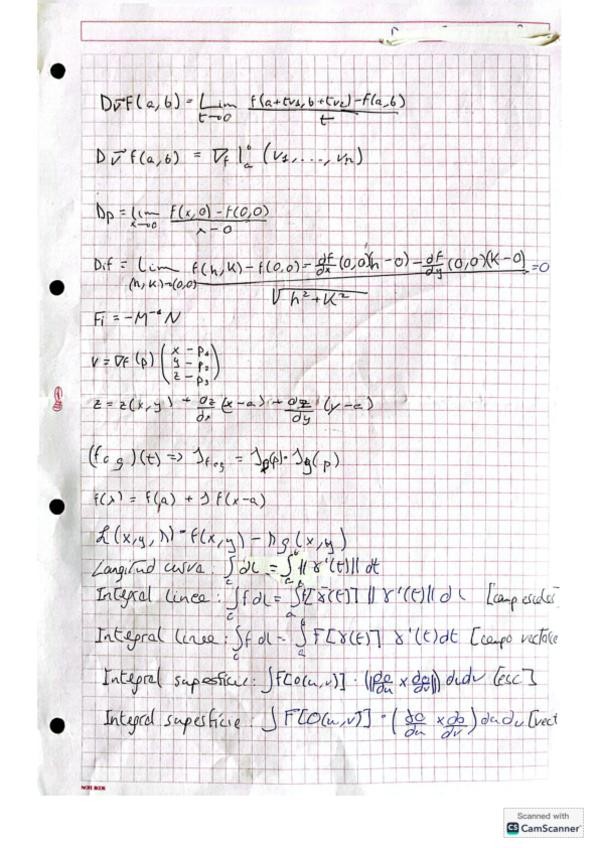 Dv⃗ F(a,b) = Lim t→0 f(a+tv1, b+tv2)-f(a,b) / t
D v⃗ f(a,b) = ∇f |ᵇₐ (v1, ..., vn)
Dp = lim x→0 f(x,0) - f(0,0) / x-0
Dif = Lim (h,k)→(0,0) f(h,k)-f(0,0)-df/dx (0,0)(h-0)-df/dy (0,0)(k-0) / √h²+k² =0
Fi = -M⁻¹N
v = ∇f (p) (x - p1
y - p2
z - p3)
z = z(x,y) + dz/dx (x-a) + dz/dy (y-a)
(f o g)(t) => Jfog = Jf(p)·Jg(p)
f(x) = f(a) + J f(x-a)
L(x,y,λ) = f(x,y) - λg(x,y)
Longitud curva: ∫c dL = ∫ₐᵇ || γ'(t)|| dt
Integral linea: ∫c f dL = ∫ₐᵇ f[γ(t)] || γ'(t)|| d [campo escalar]
Integral linea: ∫c f dL = ∫ₐᵇ F[γ(t)] γ'(t)dt [campo
Integral superficie: ∫f[σ(u,v)] · (||dσ/du x dσ/dv||) dudv [esc]
Integral superficie: ∫ F[σ(u,v)] · (dσ/du x dσ/dv) du dv [vect
NOTE BOOK
Scanned with
CS CamScanner